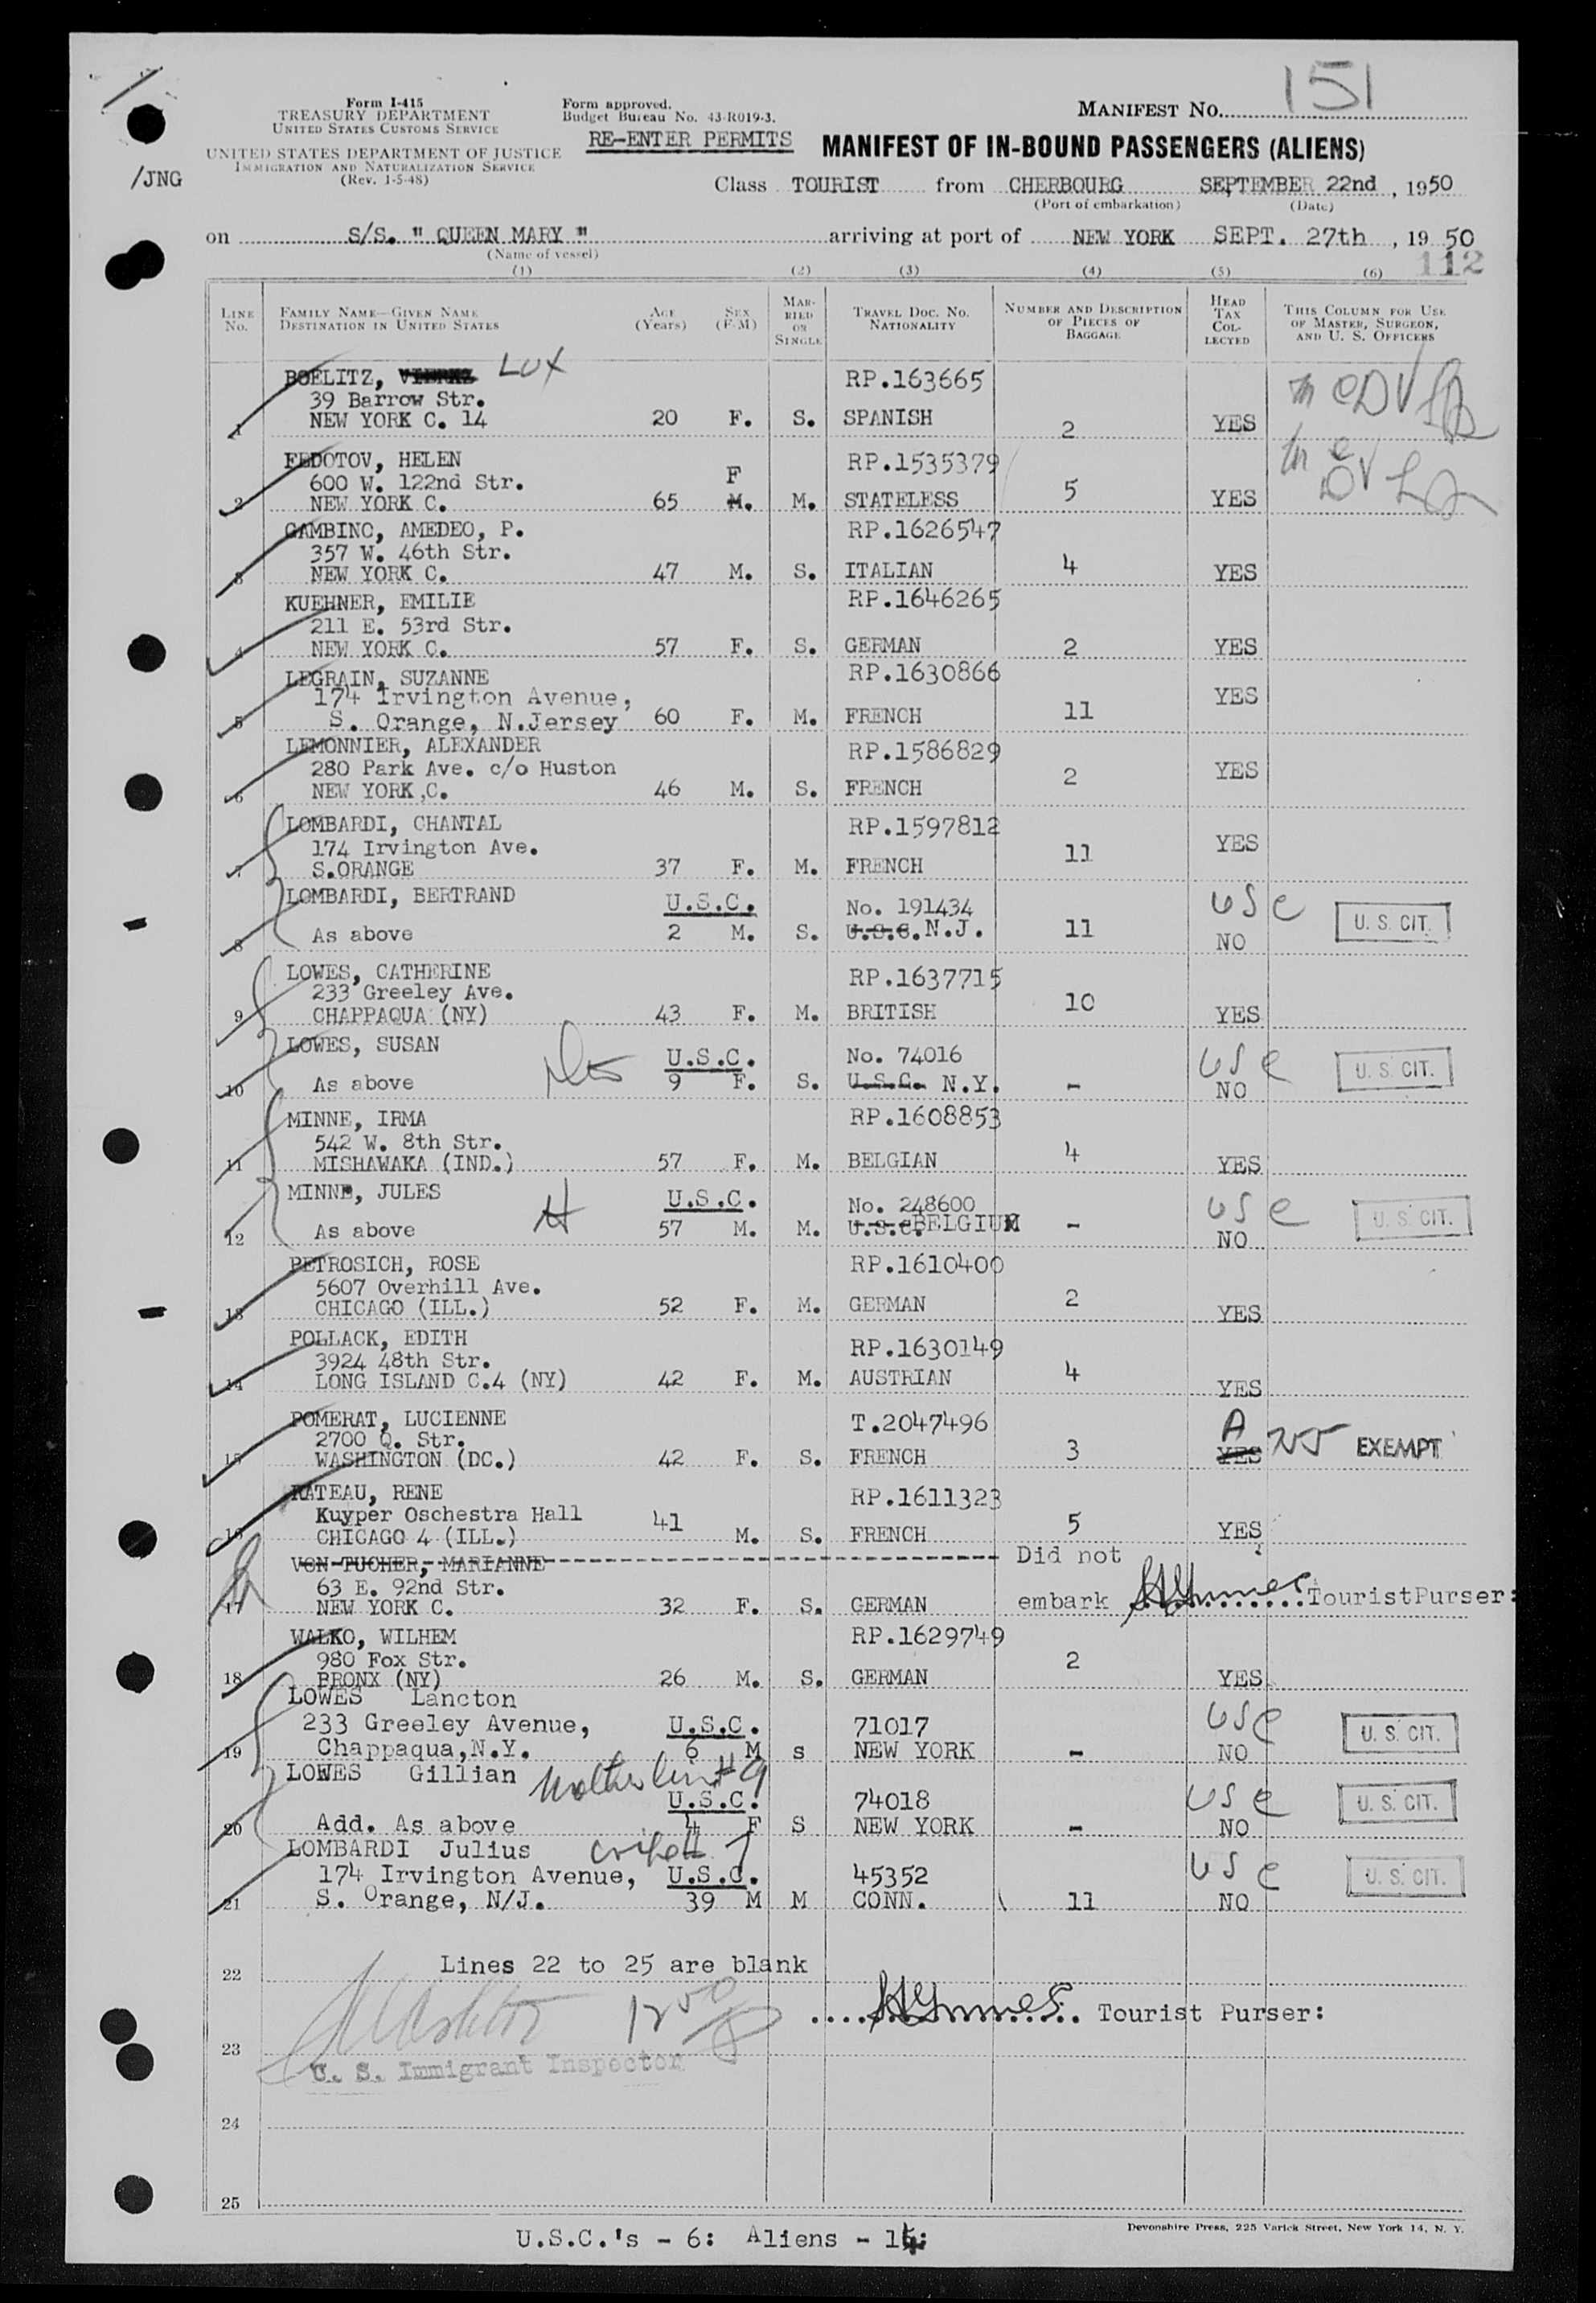 151
Form I-415
TREASURY DEPARTMENT
UNITED STATES CUSTOMS SERVICE
Form approved.
Budget Bureau No. 43-R019-3.
MANIFEST NO.
UNITED STATES DEPARTMENT OF JUSTICE
IMMIGRATION AND NATURALIZATION SERVICE
(Rev. 1-5-48)
RE-ENTER PERMITS
MANIFEST OF IN-BOUND PASSENGERS (ALIENS)
/JNG
Class TOURIST from CHERBOURG SEPTEMBER 22nd, 1950
(Port of embarkation) (Date)
on S/S. " QUEEN MARY " arriving at port of NEW YORK SEPT. 27th, 19 50
(Name of vessel)
112
(1) (2) (3) (4) (5) (6)
LINE No. FAMILY NAME—GIVEN NAME DESTINATION IN UNITED STATES AGE (Years) SEX (F-M) MARRIED OR SINGLE TRAVEL DOC. NO. NATIONALITY NUMBER AND DESCRIPTION OF PIECES OF BAGGAGE HEAD TAX COLLECTED THIS COLUMN FOR USE OF MASTER, SURGEON, AND U. S. OFFICERS
BOELITZ, LUX RP.163665
39 Barrow Str.
1 NEW YORK C. 14 20 F. S. SPANISH 2 YES
FEDOTOV, HELEN RP.1535379
600 W. 122nd Str. F
2 NEW YORK C. 65 M. M. STATELESS 5 YES
GAMBINO, AMEDEO, P. RP.1626547
357 W. 46th Str.
3 NEW YORK C. 47 M. S. ITALIAN 4 YES
KUEHNER, EMILIE RP.1646265
211 E. 53rd Str.
4 NEW YORK C. 57 F. S. GERMAN 2 YES
LEGRAIN, SUZANNE RP.1630866
174 Irvington Avenue, YES
5 S. Orange, N.Jersey 60 F. M. FRENCH 11
LEMONNIER, ALEXANDER RP.1586829
280 Park Ave. c/o Huston YES
6 NEW YORK,C. 46 M. S. FRENCH 2
LOMBARDI, CHANTAL RP.1597812
174 Irvington Ave. YES
7 S.ORANGE 37 F. M. FRENCH 11
LOMBARDI, BERTRAND U.S.C. No. 191434 USC U. S. CIT.
8 As above 2 M. S. U.S.C. N.J. 11 NO
LOWES, CATHERINE RP.1637715
233 Greeley Ave.
9 CHAPPAQUA (NY) 43 F. M. BRITISH 10 YES
LOWES, SUSAN U.S.C. No. 74016 USC U. S. CIT.
10 As above 9 F. S. U.S.C. N.Y. - NO
MINNE, IRMA RP.1608853
542 W. 8th Str.
11 MISHAWAKA (IND.) 57 F. M. BELGIAN 4 YES
MINNE, JULES U.S.C. No. 248600 USC U. S. CIT.
12 As above 57 M. M. U.S.C. BELGIUM - NO
PETROSICH, ROSE RP.1610400
5607 Overhill Ave.
13 CHICAGO (ILL.) 52 F. M. GERMAN 2 YES
POLLACK, EDITH RP.1630149
3924 48th Str.
14 LONG ISLAND C.4 (NY) 42 F. M. AUSTRIAN 4 YES
POMERAT, LUCIENNE T.2047496 A
2700 Q. Str.
15 WASHINGTON (DC.) 42 F. S. FRENCH 3 YES EXEMPT
RATEAU, RENE RP.1611323
Kuyper Oschestra Hall
16 CHICAGO 4 (ILL.) 41 M. S. FRENCH 5 YES
VON TUCHER, MARIANNE Did not
63 E. 92nd Str.
17 NEW YORK C. 32 F. S. GERMAN embark TouristPurser:
WALKO, WILHEM RP.1629749
980 Fox Str.
18 BRONX (NY) 26 M. S. GERMAN 2 YES
LOWES Lancton
233 Greeley Avenue, U.S.C. 71017 USC U. S. CIT.
19 Chappaqua,N.Y. 6 M s NEW YORK - NO
LOWES Gillian Mother line # 9
U.S.C. 74018 USC U. S. CIT.
20 Add. As above 4 F S NEW YORK - NO
LOMBARDI Julius # 7
174 Irvington Avenue, U.S.C. 45352 USC U. S. CIT.
21 S. Orange, N/J. 39 M M CONN. 11 NO
22 Lines 22 to 25 are blank
Tourist Purser:
23
U. S. Immigrant Inspector
24
25
Devonshire Press, 225 Varick Street, New York 14, N. Y.
U.S.C.'s - 6: Aliens - 14: